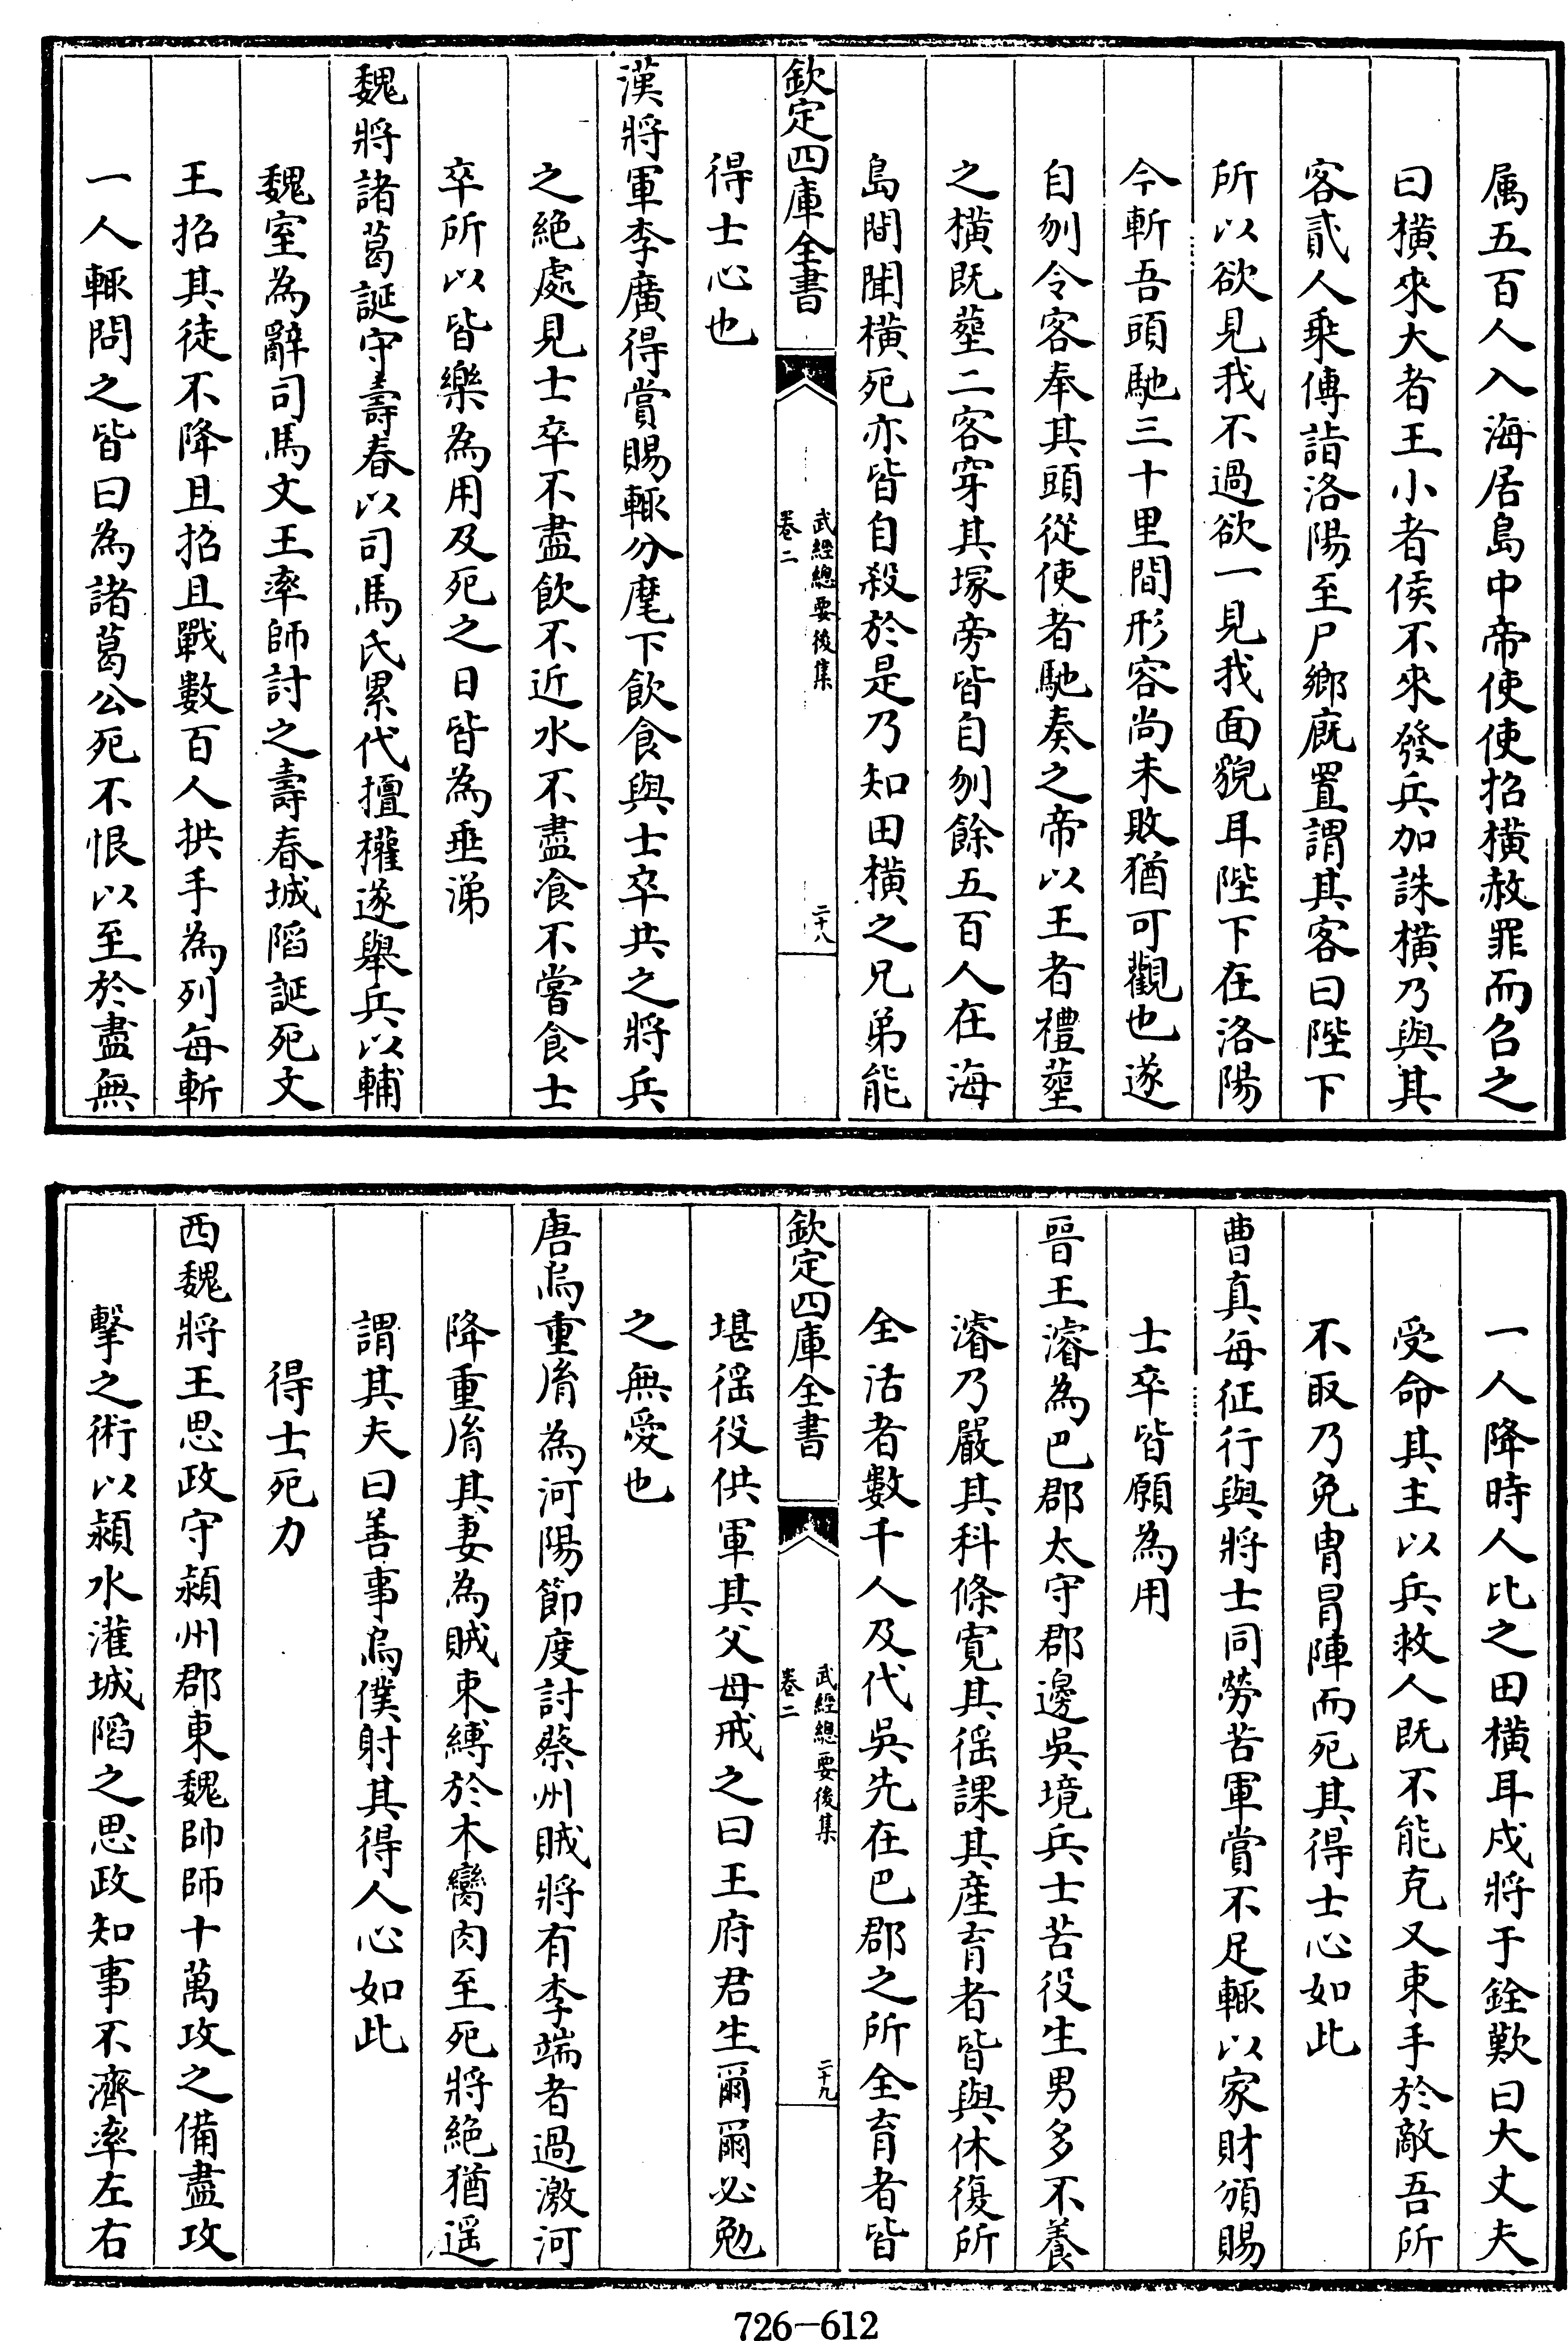 属五百人入海居島中帝使使招橫赦罪而召之
曰橫來大者王小者侯不來發兵加誅橫乃與其
客貳人乘傳詣洛陽至尸鄉廐置謂其客曰陛下
所以欲見我不過欲一見我面貌耳陛下在洛陽
今斬吾頭馳三十里間形容尚未敗猶可觀也遂
自刎令客奉其頭從使者馳奏之帝以王者禮塟
之橫既塟二客穿其塚旁皆自刎餘五百人在海
島間聞橫死亦皆自殺於是乃知田橫之兄弟能
欽定四庫全書
武經總要後集
卷二
二十八
得士心也
漢將軍李廣得賞賜輒分麾下飲食與士卒共之將兵
之絕處見士卒不盡飲不近水不盡飡不嘗食士
卒所以皆樂為用及死之日皆為垂涕
魏將諸葛誕守壽春以司馬氏累代擅權遂舉兵以輔
魏室為辭司馬文王率師討之壽春城陷誕死文
王招其徒不降且招且戰數百人拱手為列每斬
一人輒問之皆曰為諸葛公死不恨以至於盡無
一人降時人比之田橫耳戍將于銓歎曰大丈夫
受命其主以兵救人既不能克又束手於敵吾所
不取乃免胄冒陣而死其得士心如此
曹真每征行與將士同勞苦軍賞不足輒以家財頒賜
士卒皆願為用
晉王濬為巴郡太守郡邊吳境兵士苦役生男多不養
濬乃嚴其科條寬其徭課其產育者皆與休復所
全活者數千人及代吳先在巴郡之所全育者皆
欽定四庫全書
武經總要後集
卷二
二十九
堪徭役供軍其父母戒之曰王府君生爾爾必勉
之無愛也
唐烏重胤為河陽節度討蔡州賊將有李端者過激河
降重胤其妻為賊束縛於木臠肉至死將絕猶遥
謂其夫曰善事烏僕射其得人心如此
得士死力
西魏將王思政守潁州郡東魏帥師十萬攻之備盡攻
擊之術以潁水灌城陷之思政知事不濟率左右
726-612